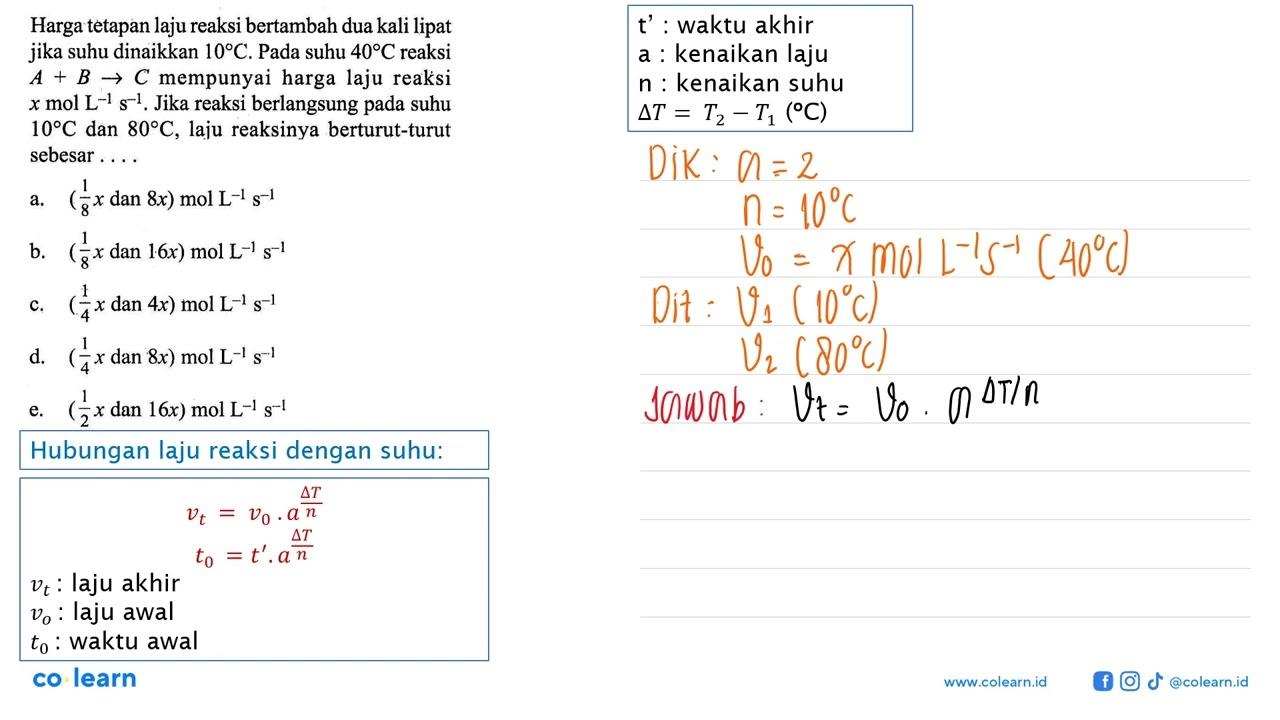 Harga tetapan laju reaksi bertambah dua kali lipat
jika suhu dinaikkan 10°C. Pada suhu 40°C reaksi
A + B → C mempunyai harga laju reaksi
x mol L⁻¹ s⁻¹. Jika reaksi berlangsung pada suhu
10°C dan 80°C, laju reaksinya berturut-turut
sebesar . . . .
a. (1/8 x dan 8x) mol L⁻¹ s⁻¹
b. (1/8 x dan 16x) mol L⁻¹ s⁻¹
c. (1/4 x dan 4x) mol L⁻¹ s⁻¹
d. (1/4 x dan 8x) mol L⁻¹ s⁻¹
e. (1/2 x dan 16x) mol L⁻¹ s⁻¹
Hubungan laju reaksi dengan suhu:
vₜ = v₀ . a^(ΔT/n)
t₀ = t'. a^(ΔT/n)
vₜ : laju akhir
vₒ : laju awal
t₀ : waktu awal
t' : waktu akhir
a : kenaikan laju
n : kenaikan suhu
ΔT = T₂ − T₁ (°C)
Dik : a = 2
n = 10°C
V₀ = x mol L⁻¹s⁻¹ (40°C)
Dit : V₁ (10°C)
V₂ (80°C)
Jawab : Vₜ = V₀ . a^(ΔT/n)
co learn
www.colearn.id
@colearn.id